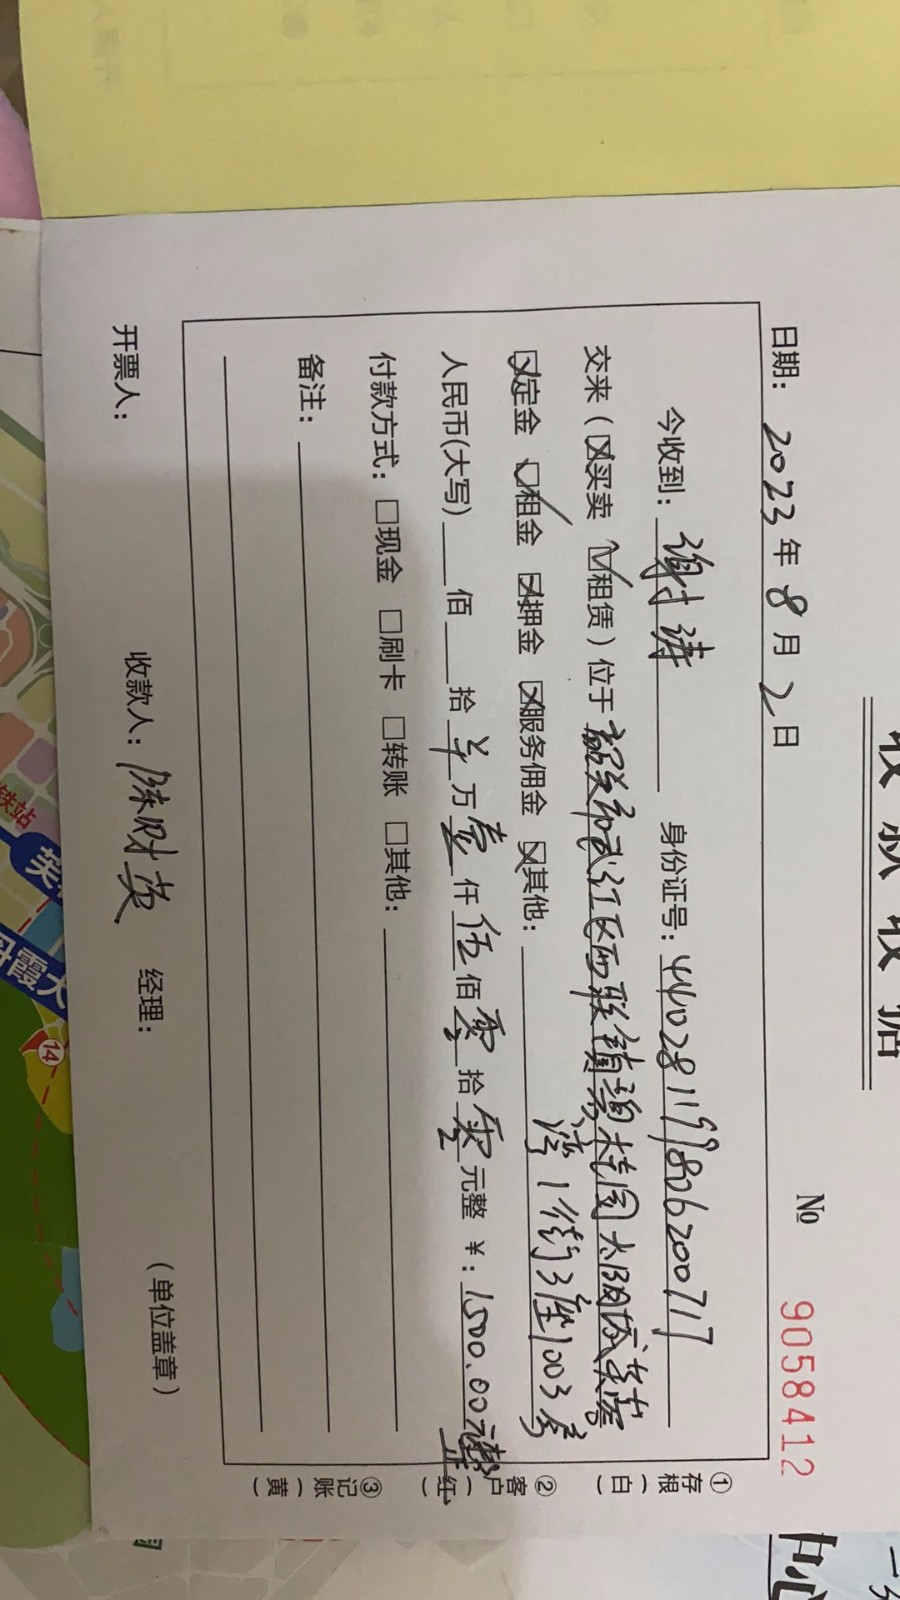 收款收据
№ 9058412
日期：2023年8月2日
今收到：谢涛 身份证号：440281199806200717
交来（☒买卖 ☑租赁）位于韶关市武江区西联镇碧桂园太阳城芙蓉
☒定金 ☑租金 ☒押金 ☒服务佣金 ☒其他： 湾1街3座1003房
人民币(大写) 佰 拾 ¥万壹仟伍佰零拾零元整 ¥：1500.00元整
付款方式：□现金 □刷卡 □转账 □其他：
备注：
开票人： 收款人：陈财英 经理： （单位盖章）
①存根（白）
②客户（红）
③记账（黄）
铁站
丹霞大
14
中心